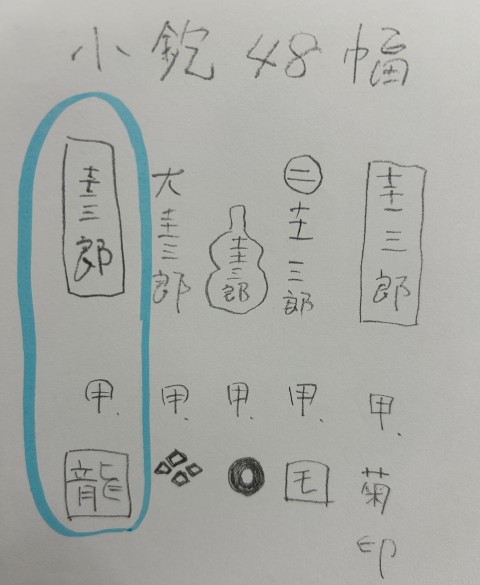 小鉋48幅
圭三郎
大圭三郎
圭三郎
㊁圭三郎
圭三郎
甲、
甲、
甲、
甲、
甲、
龍
毛
菊印